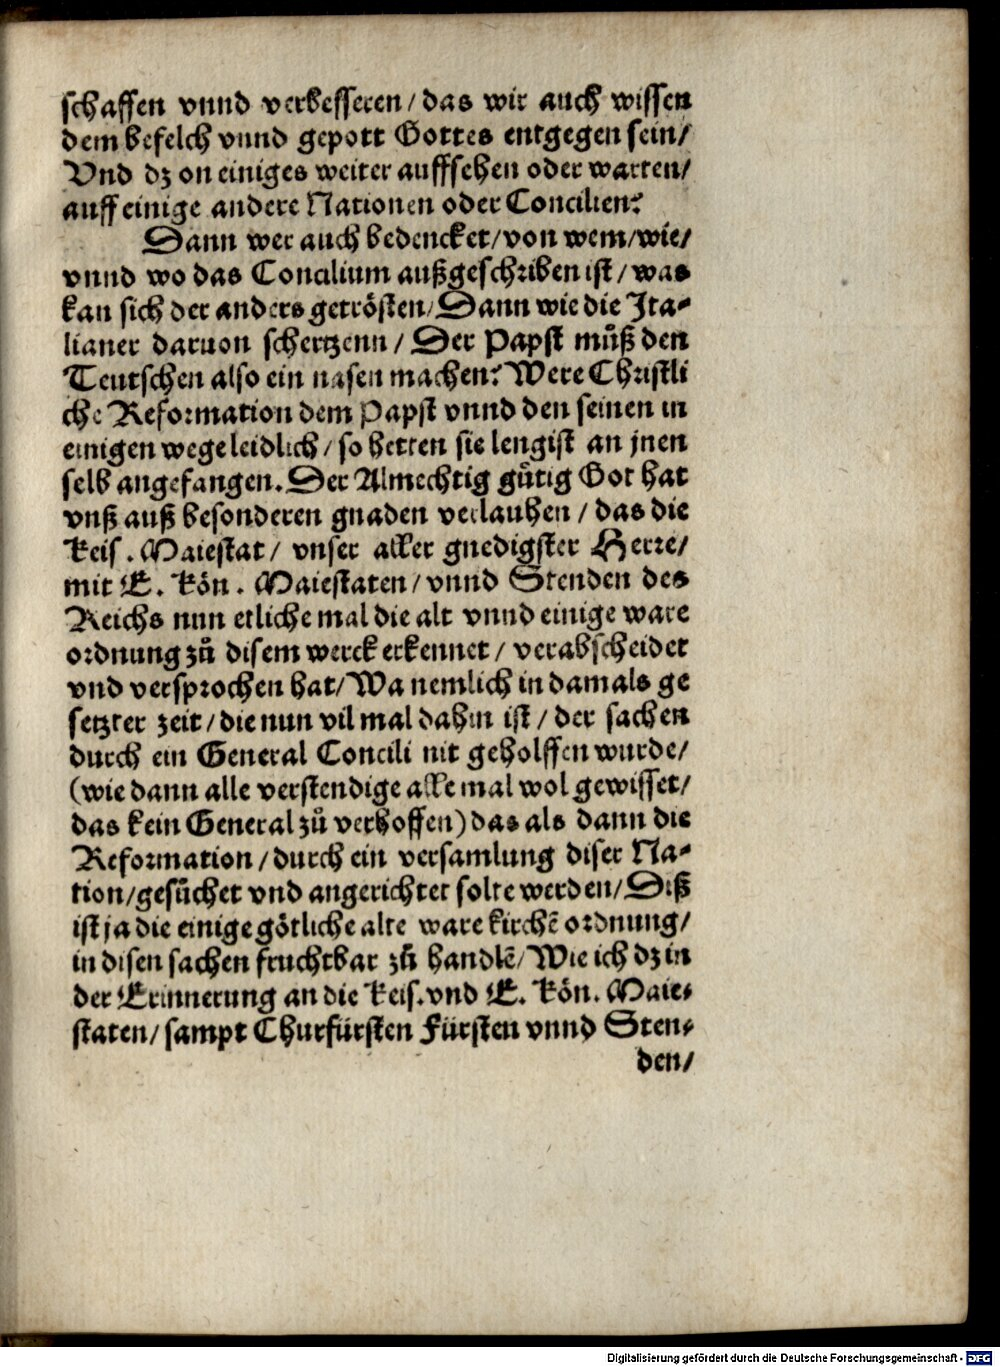 schaffen vnnd verbesseren/ das wir auch wissen
dem befelch vnnd gepott Gottes entgegen sein/
Vnd dz on einiges weiter auffsehen oder warten/
auff einige andere Nationen oder Concilien?
Dann wer auch bedencket/ von wem/ wie/
vnnd wo das Concilium außgeschriben ist/ was
kan sich der anders getrösten/ Dann wie die Ita-
lianer daruon schertzenn/ Der Papst můß den
Teutschen also ein nasen machen? Were Christli
che Reformation dem Papst vnnd den seinen in
einigen wege leidlich/ so hetten sie lengist an jnen
selb angefangen. Der Almechtig gůtig Got hat
vnß auß besonderen gnaden verlauhen/ das die
Keis. Maiestat/ vnser aller gnedigster Herre/
mit E. Kön. Maiestaten/ vnnd Stenden des
Reichs nun etliche mal die alt vnnd einige ware
ordnung zů disem werck erkennet/ verabscheidet
vnd versprochen hat/ Wa nemlich in damals ge
setzter zeit/ die nun vil mal dahin ist/ der sachen
durch ein General Concili nit geholffen wurde/
(wie dann alle verstendige alle mal wol gewisset/
das kein General zů verhoffen) das als dann die
Reformation/ durch ein versamlung diser Na-
tion/ gesůchet vnd angerichtet solte werden/ Diß
ist ja die einige götliche alte ware kirchē ordnung/
in disen sachen fruchtbar zů handlē/ Wie ich dz in
der Erinnerung an die Keis. vnd E. Kön. Maie-
staten/ sampt Churfürsten Fürsten vnnd Sten-
den/
Digitalisierung gefördert durch die Deutsche Forschungsgemeinschaft - DFG